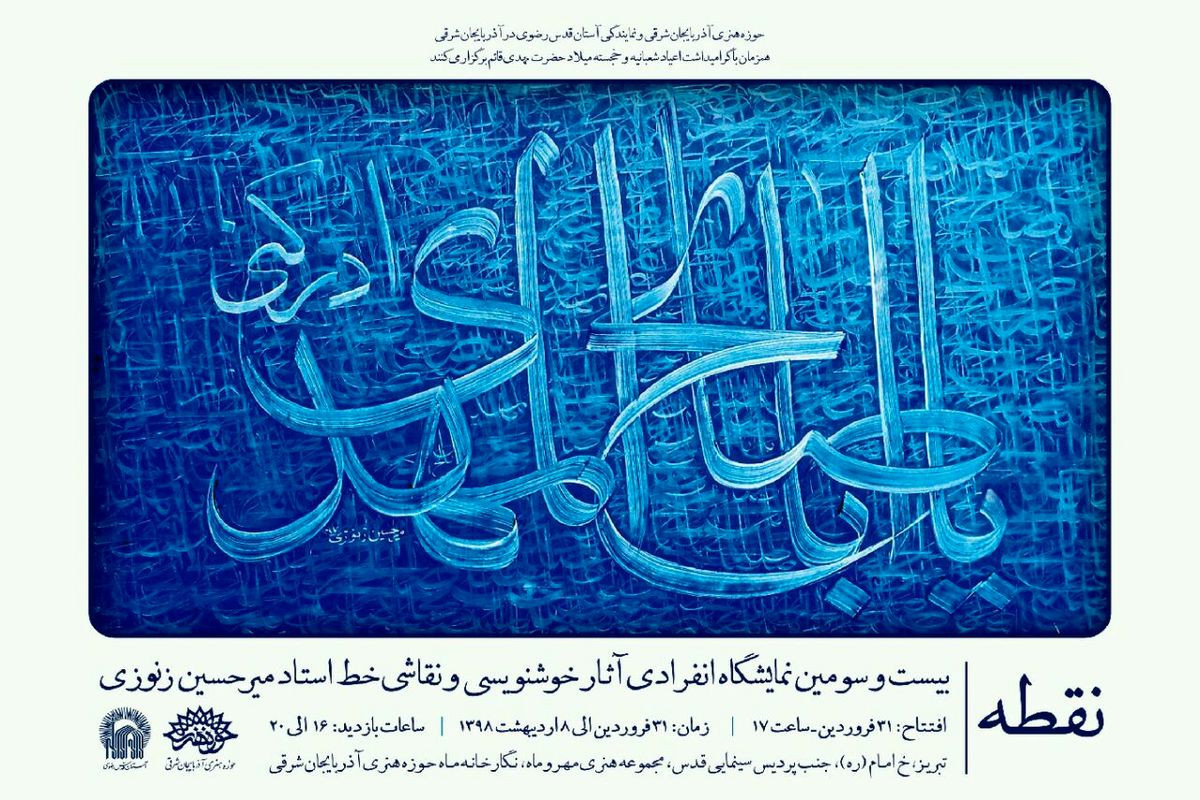 حوزه هنری آذربایجان شرقی و نمایندگی آستان قدس رضوی در آذربایجان شرقی
همزمان با گرامیداشت اعیاد شعبانیه و خجسته میلاد حضرت مهدی قائم برگزار می کنند
یا اباصالح المهدی ادرکنی
میرحسین زنوزی
نقطه
بیست و سومین نمایشگاه انفرادی آثار خوشنویسی و نقاشی خط استاد میرحسین زنوزی
افتتاح: ۳۱ فروردین - ساعت ۱۷ | زمان: ۳۱ فروردین الی ۸ اردیبهشت ۱۳۹۸ | ساعات بازدید: ۱۶ الی ۲۰
تبریز، خ امام (ره)، جنب پردیس سینمایی قدس، مجموعه هنری مهر و ماه، نگارخانه ماه حوزه هنری آذربایجان شرقی
حوزه هنری آذربایجان شرقی
آستان قدس رضوی